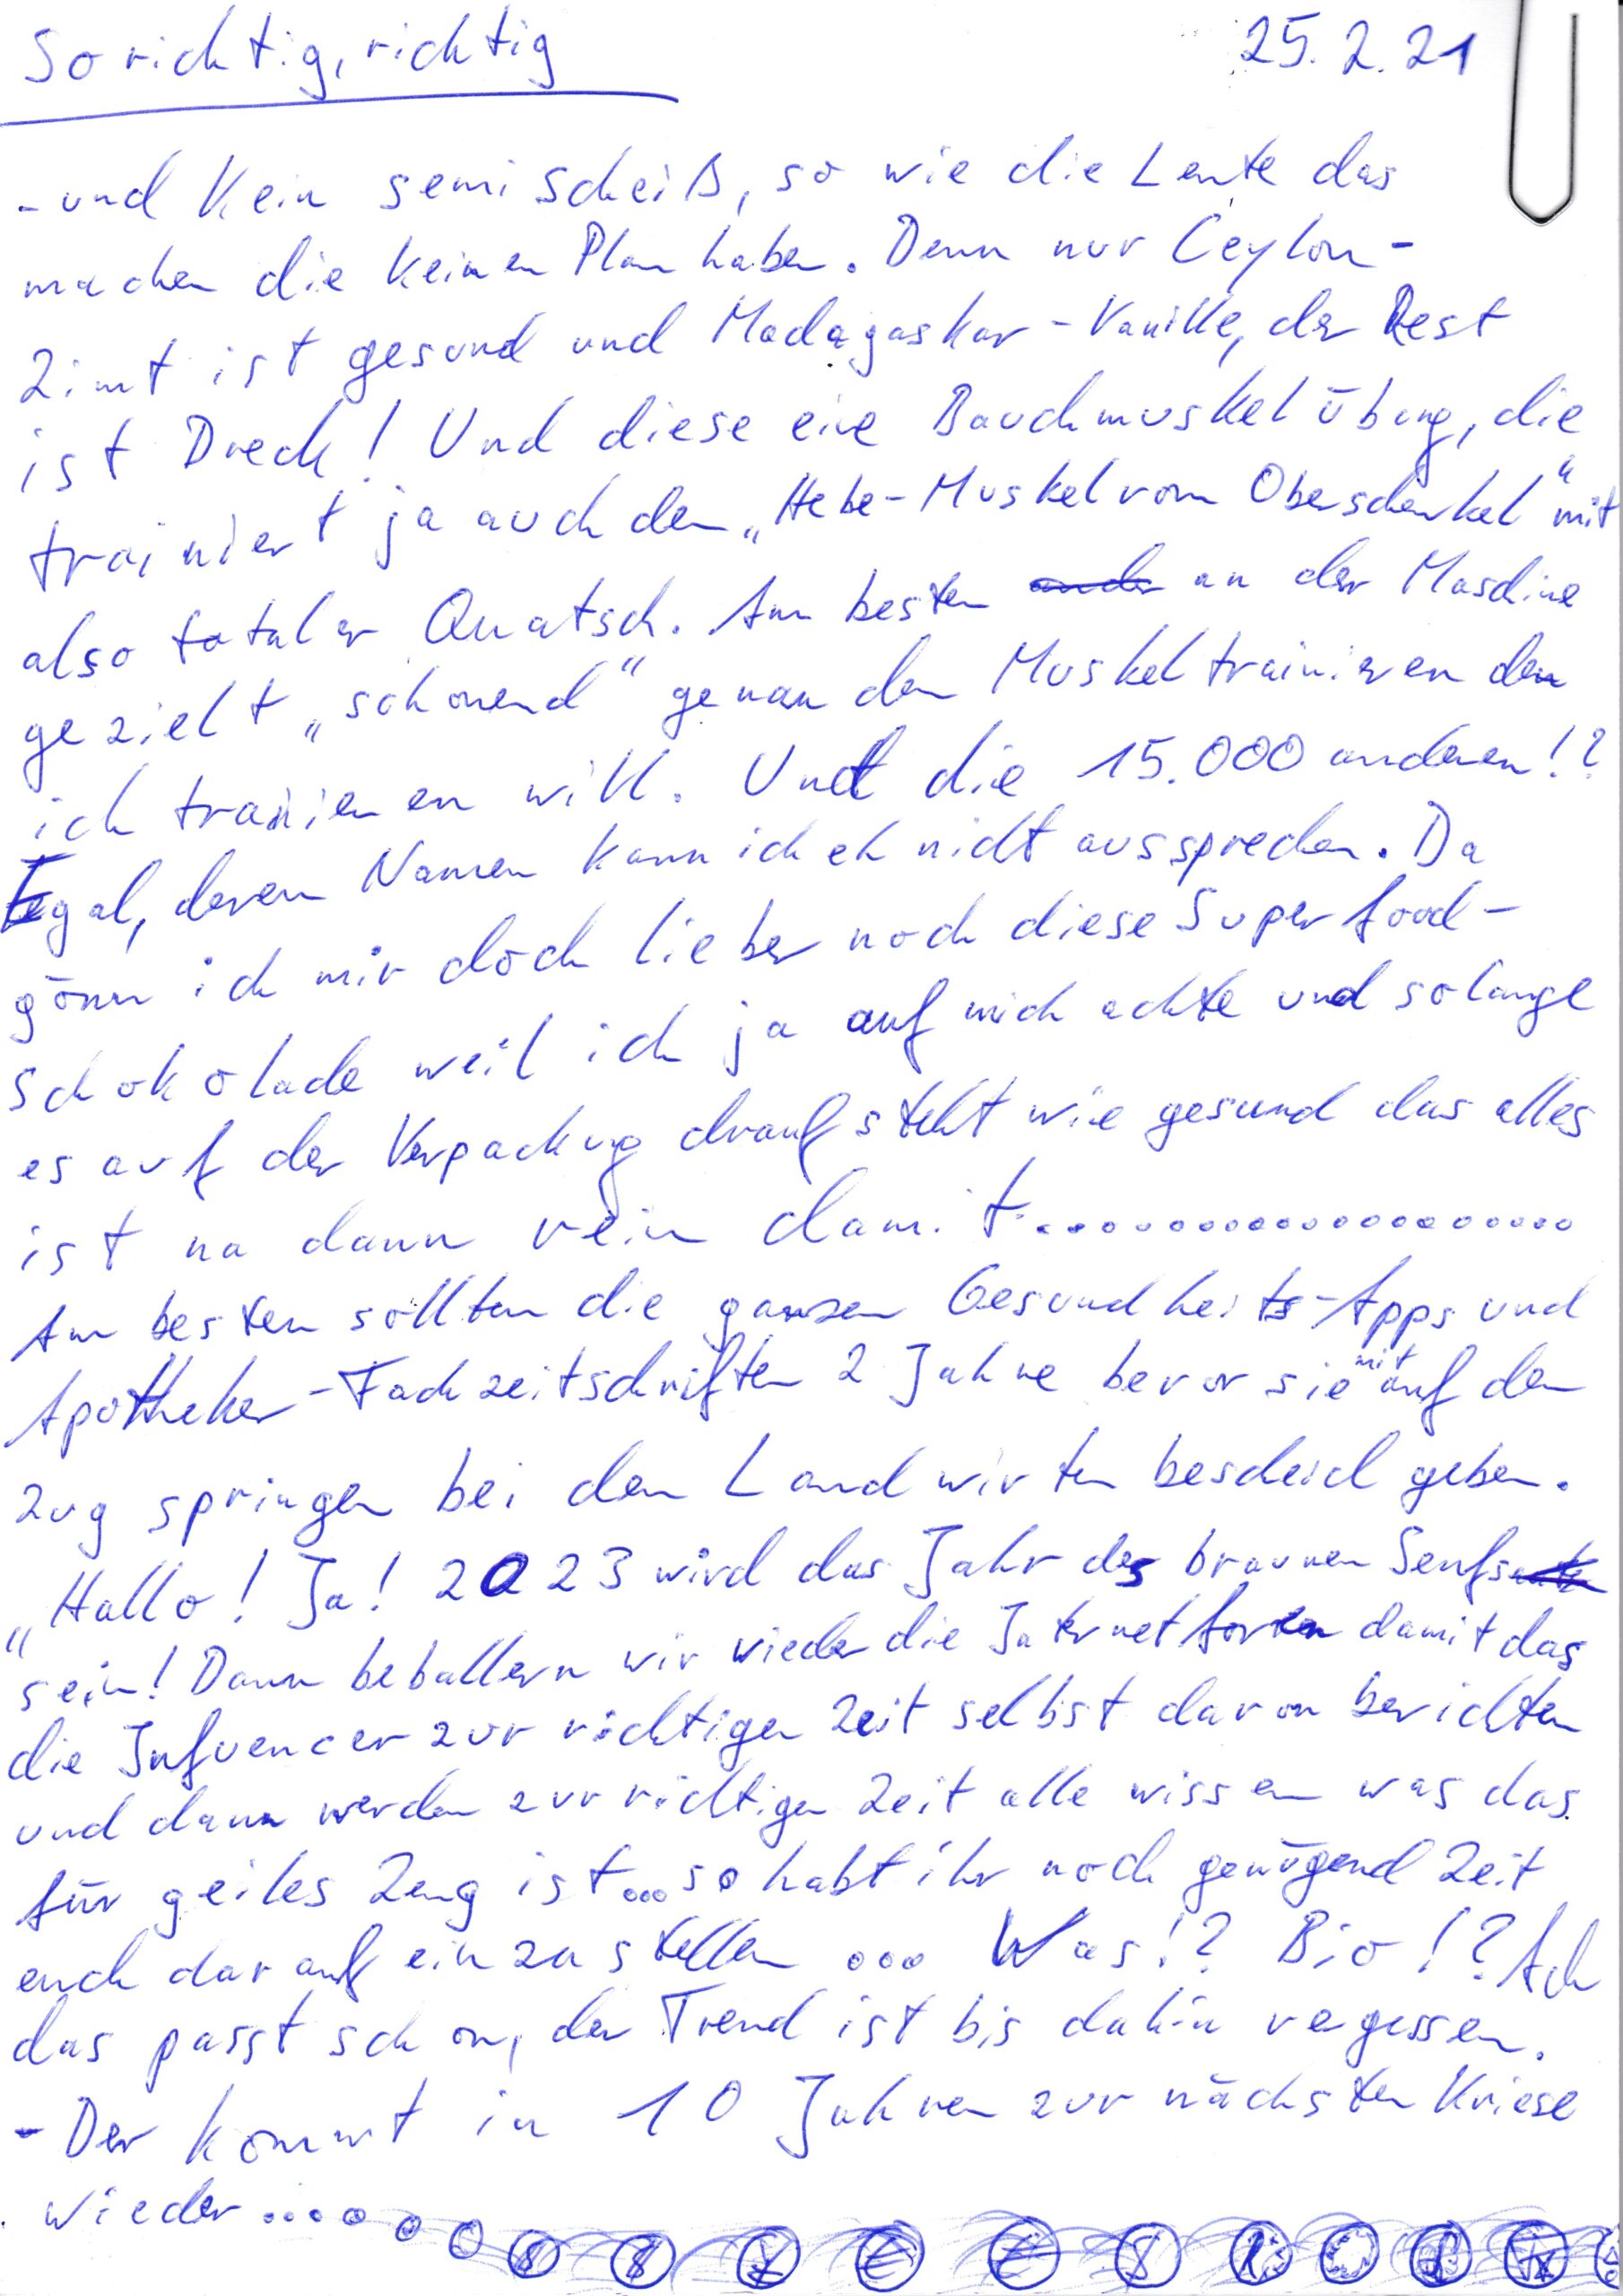 So richtig, richtig 25.2.21
- und kein semi Scheiß, so wie die Leute das
machen die keinen Plan haben. Denn nur Ceylon-
Zimt ist gesund und Madagaskar-Vanille, der Rest
ist Dreck! Und diese eine Bauchmuskel übung, die
trainiert ja auch den „Hebe-Muskel vom Oberschenkel" mit
also totaler Quatsch. Am besten an der Maschine
gezielt „schonend" genau den Muskel trainieren den
ich trainieren will. Und die 15.000 anderen!?
Egal, deren Namen kann ich eh nicht aussprechen. Da
gönn ich mir doch lieber noch diese Superfood-
schokolade weil ich ja auf mich achte und solange
es auf der Verpackug drauf steht wie gesund das alles
ist na dann rein damit......................
Am besten sollten die ganzen Gesundheits-Apps und
Apotheker-Fachzeitschriften 2 Jahre bevor sie mit auf den
Zug springen bei den Landwirten bescheid geben.
„Hallo! Ja! 2023 wird das Jahr des braunen Senfs
sein! Dann beballern wir wieder die Internetforen damit das
die Infuencer zur richtigen Zeit selbst davon berichten
und dann werden zur richtigen Zeit alle wissen was das
für geiles Zeug ist...so habt ihr noch genügend Zeit
euch darauf einzustellen ... Was!? Bio!? Ach
das passt schon, der Trend ist bis dahin vergessen.
- Der kommt in 10 Jahren zur nächsten Kriese
wieder.......